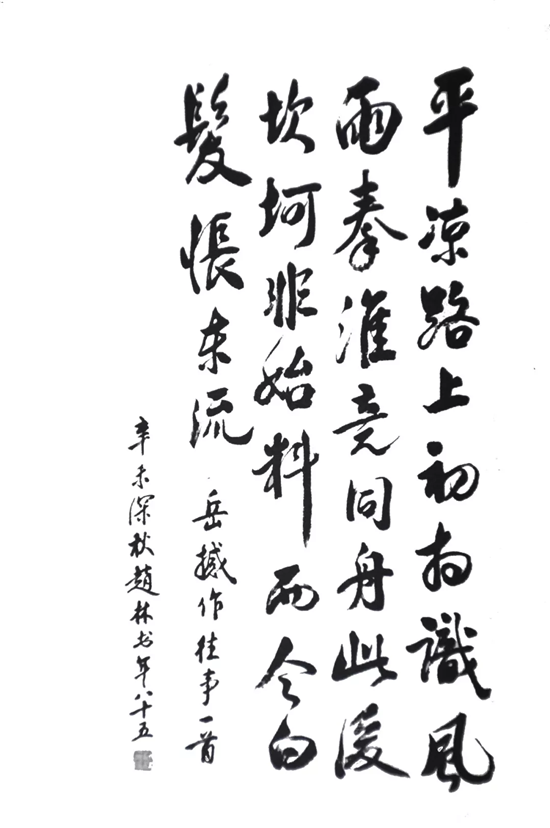 平凉路上初相識風
雨秦淮竟同舟此後
坎坷非始料而今白
髮悵東流 岳撼作往事一首
辛未深秋趙林书年八十五